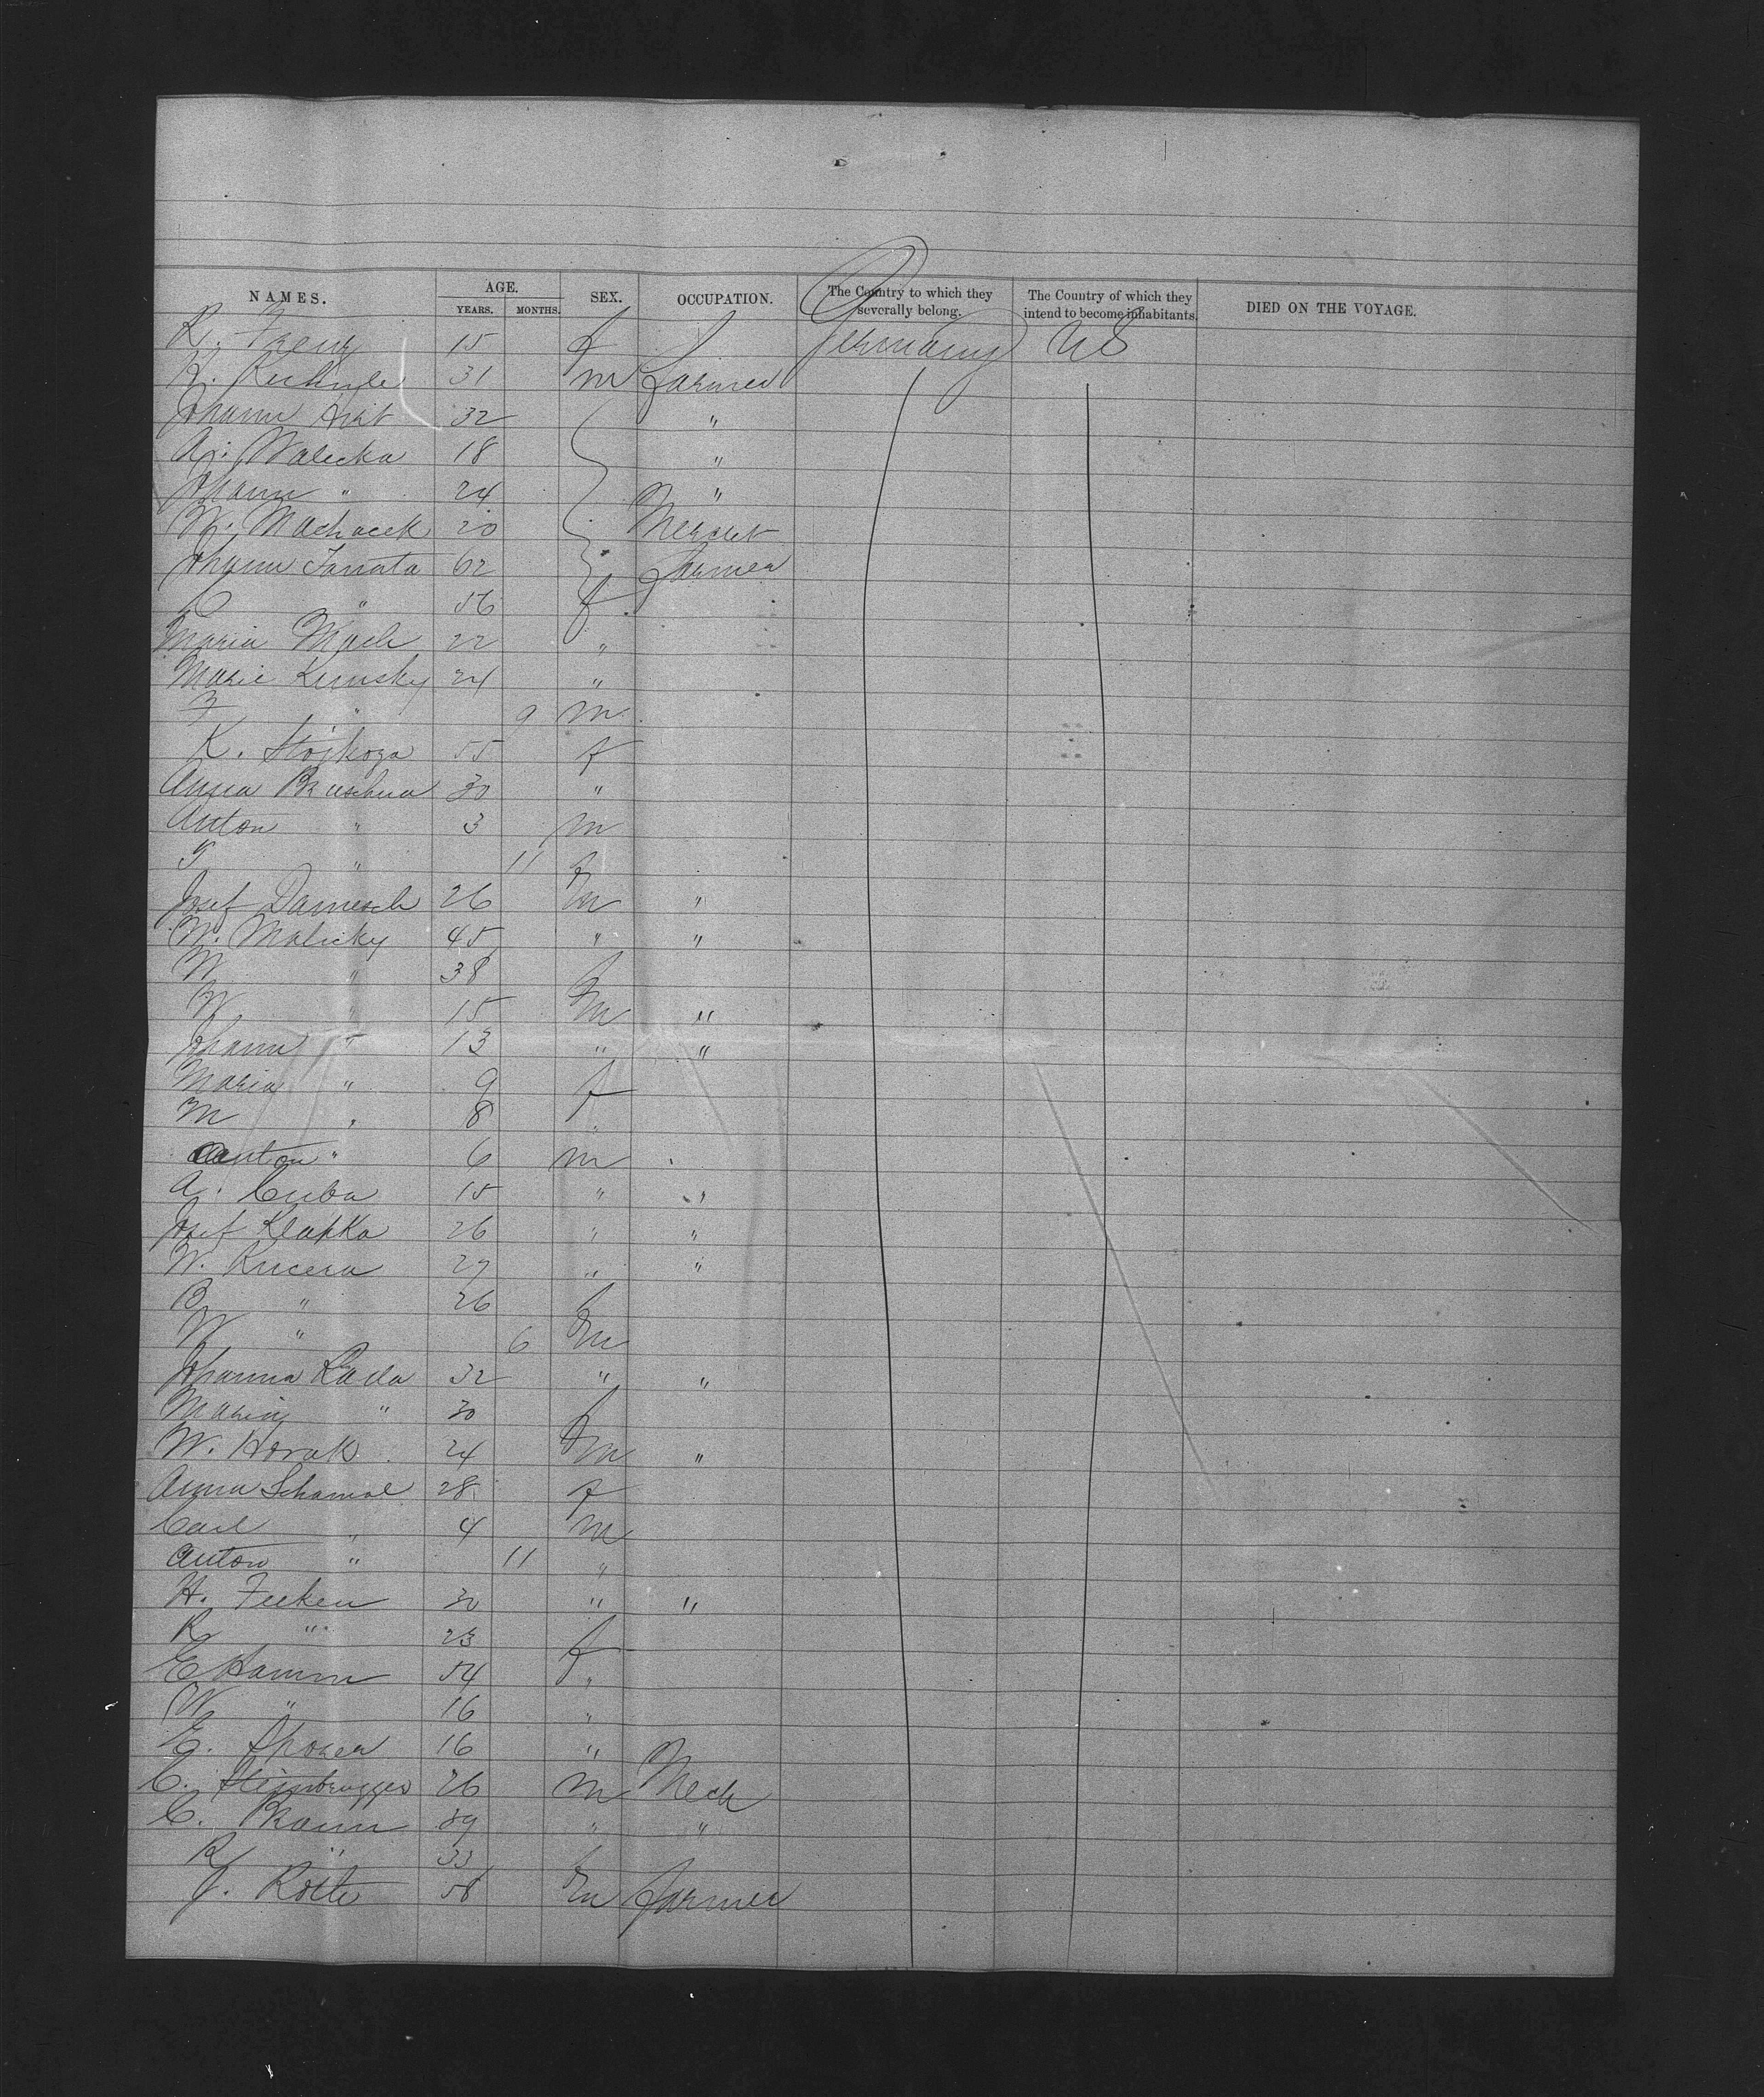 NAMES. AGE. YEARS. MONTHS. SEX. OCCUPATION. The Country to which they severally belong. The Country of which they intend to become inhabitants. DIED ON THE VOYAGE.
R. 15 f Germany US
K. 31 m Farmer
Johann 32 "
A. Walecka 18 "
Johann " 24 "
W. Machacek 20
Johann Janata 62 Farmer
C " 56 f
Maria Mach 22 "
Marie Kumsky 24 "
F " 9 m
K. 55 f
Anna 30 "
Anton " 3 m
" 11 f
Josef 26 m "
W. Malicky 45 " "
W " 38 f
W " 15 m "
Johann " 13 " "
Maria " 9 f
M " 8 "
Anton " 6 m "
A. Cuba 15 " "
Josef Klapka 26 " "
W. Kucera 27 " "
B " 26 f
W " 6 m
Johanna Rada 32 " "
" 30 f
W. Horak 24 m "
Anna Schamal 28 f
Carl " 4 m
Anton " 11 "
H. Feeken 30 " "
R " 23 f
E Hamm 54 "
W " 16 "
E. 16 "
C. 26 m Mech
C. Braun 39 " "
R " 33 f
J. 58 m Farmer